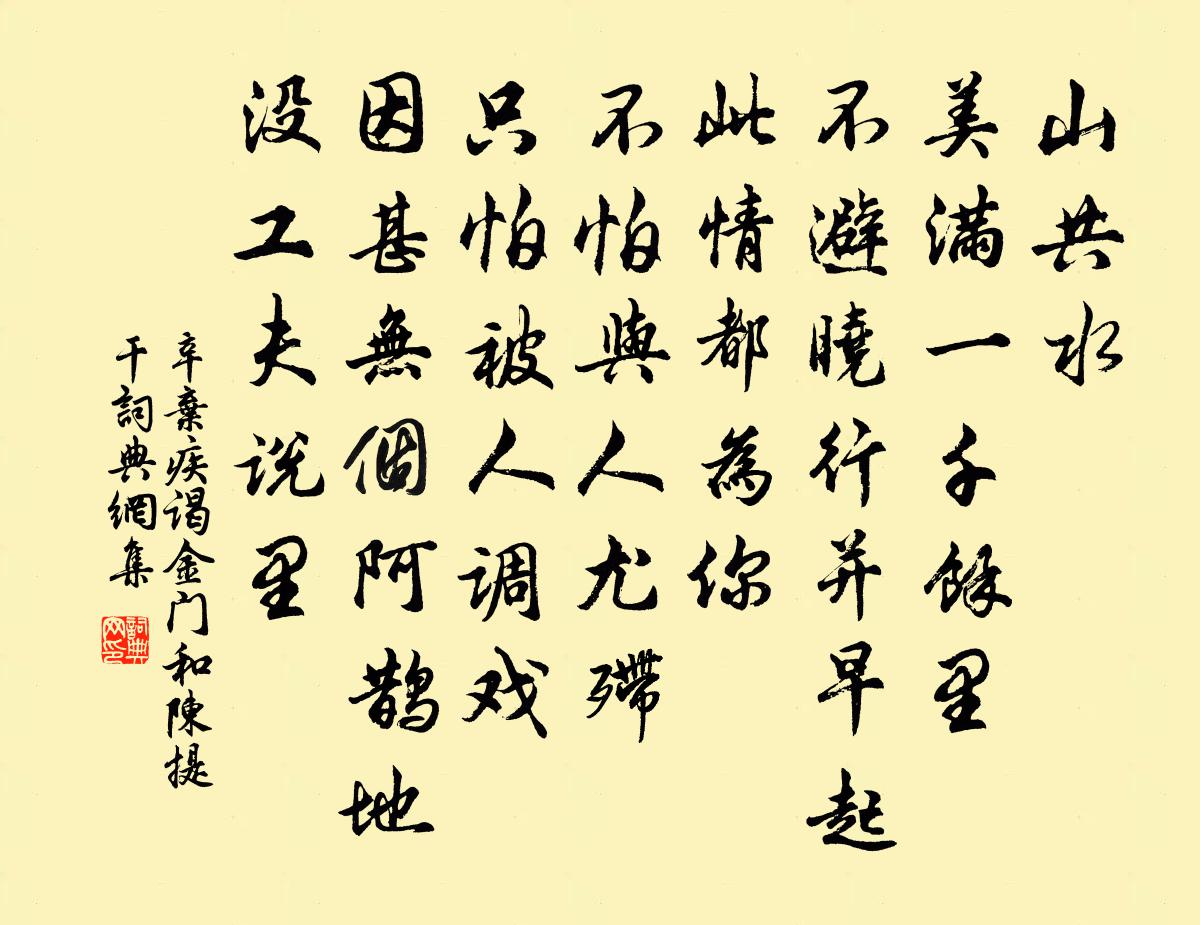 山共水
美满一千餘里
不避曉行并早起
此情都為你
不怕與人尤殢
只怕被人调戏
因甚無個阿鹊地
没工夫说里
辛棄疾谒金门和陳提
干詞典網集
詞典网印